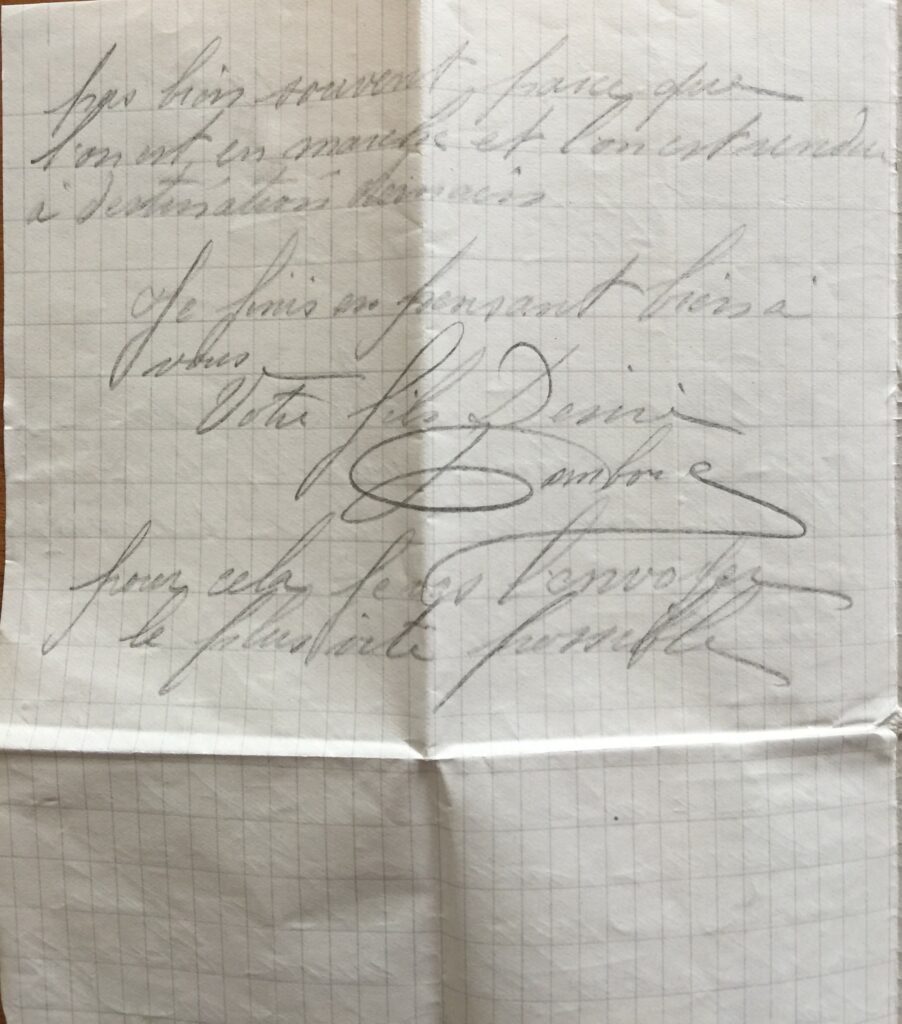 pas bien souvent, parce que
l'on est en marche et l'on est rendu
à destination demain
Je finis en pensant bien à
vous
Votre fils Désiré
pour cela l'envoyer
le plus vite possible